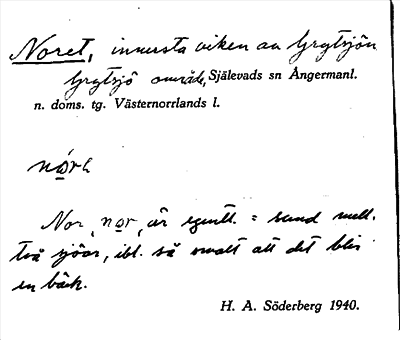 Noret, innersta viken av Grytsjön
Grytsjö område, Själevads sn Ångermanl.
n. doms. tg. Västernorrlands l.
no̲r
Nor, no̲r, är egentl. = sund mell.
två sjöar, ibl. så smalt att det blir
en bäck.
H. A. Söderberg 1940.